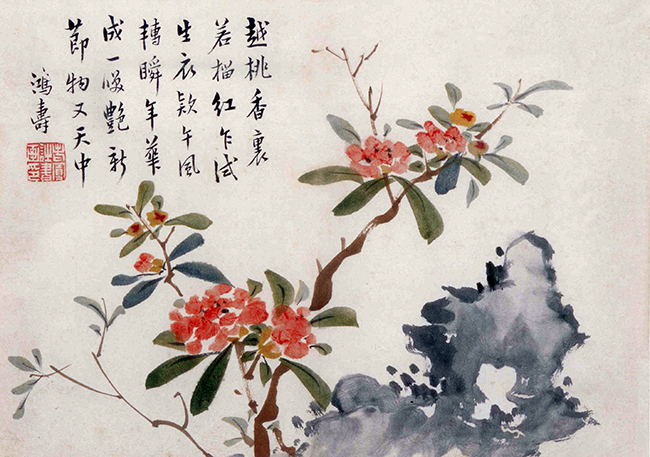 越桃香裏
若榴紅乍試
生衣欵午風
轉瞬年華
成一艷新
節物又天中
鴻壽